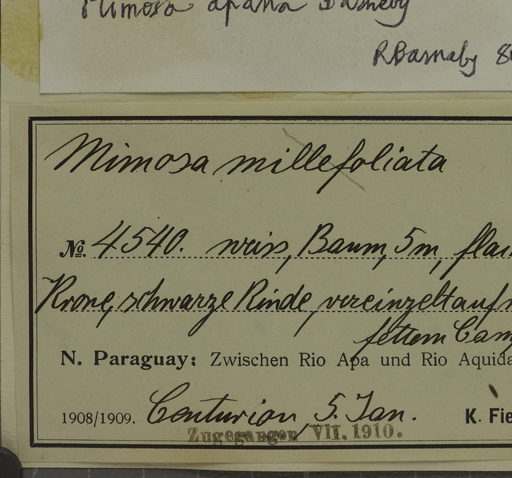 Mimosa apana Barneby
RBarneby 8
Mimosa millefoliata
No. 4540. weiss, Baum, 5m, flac
Krone, schwarze Rinde, vereinzelt auf
fettem Cam
N. Paraguay: Zwischen Rio Apa und Rio Aquida
1908/1909. Centurion, 5. Jan. K. Fie
Zugegangen VII. 1910.